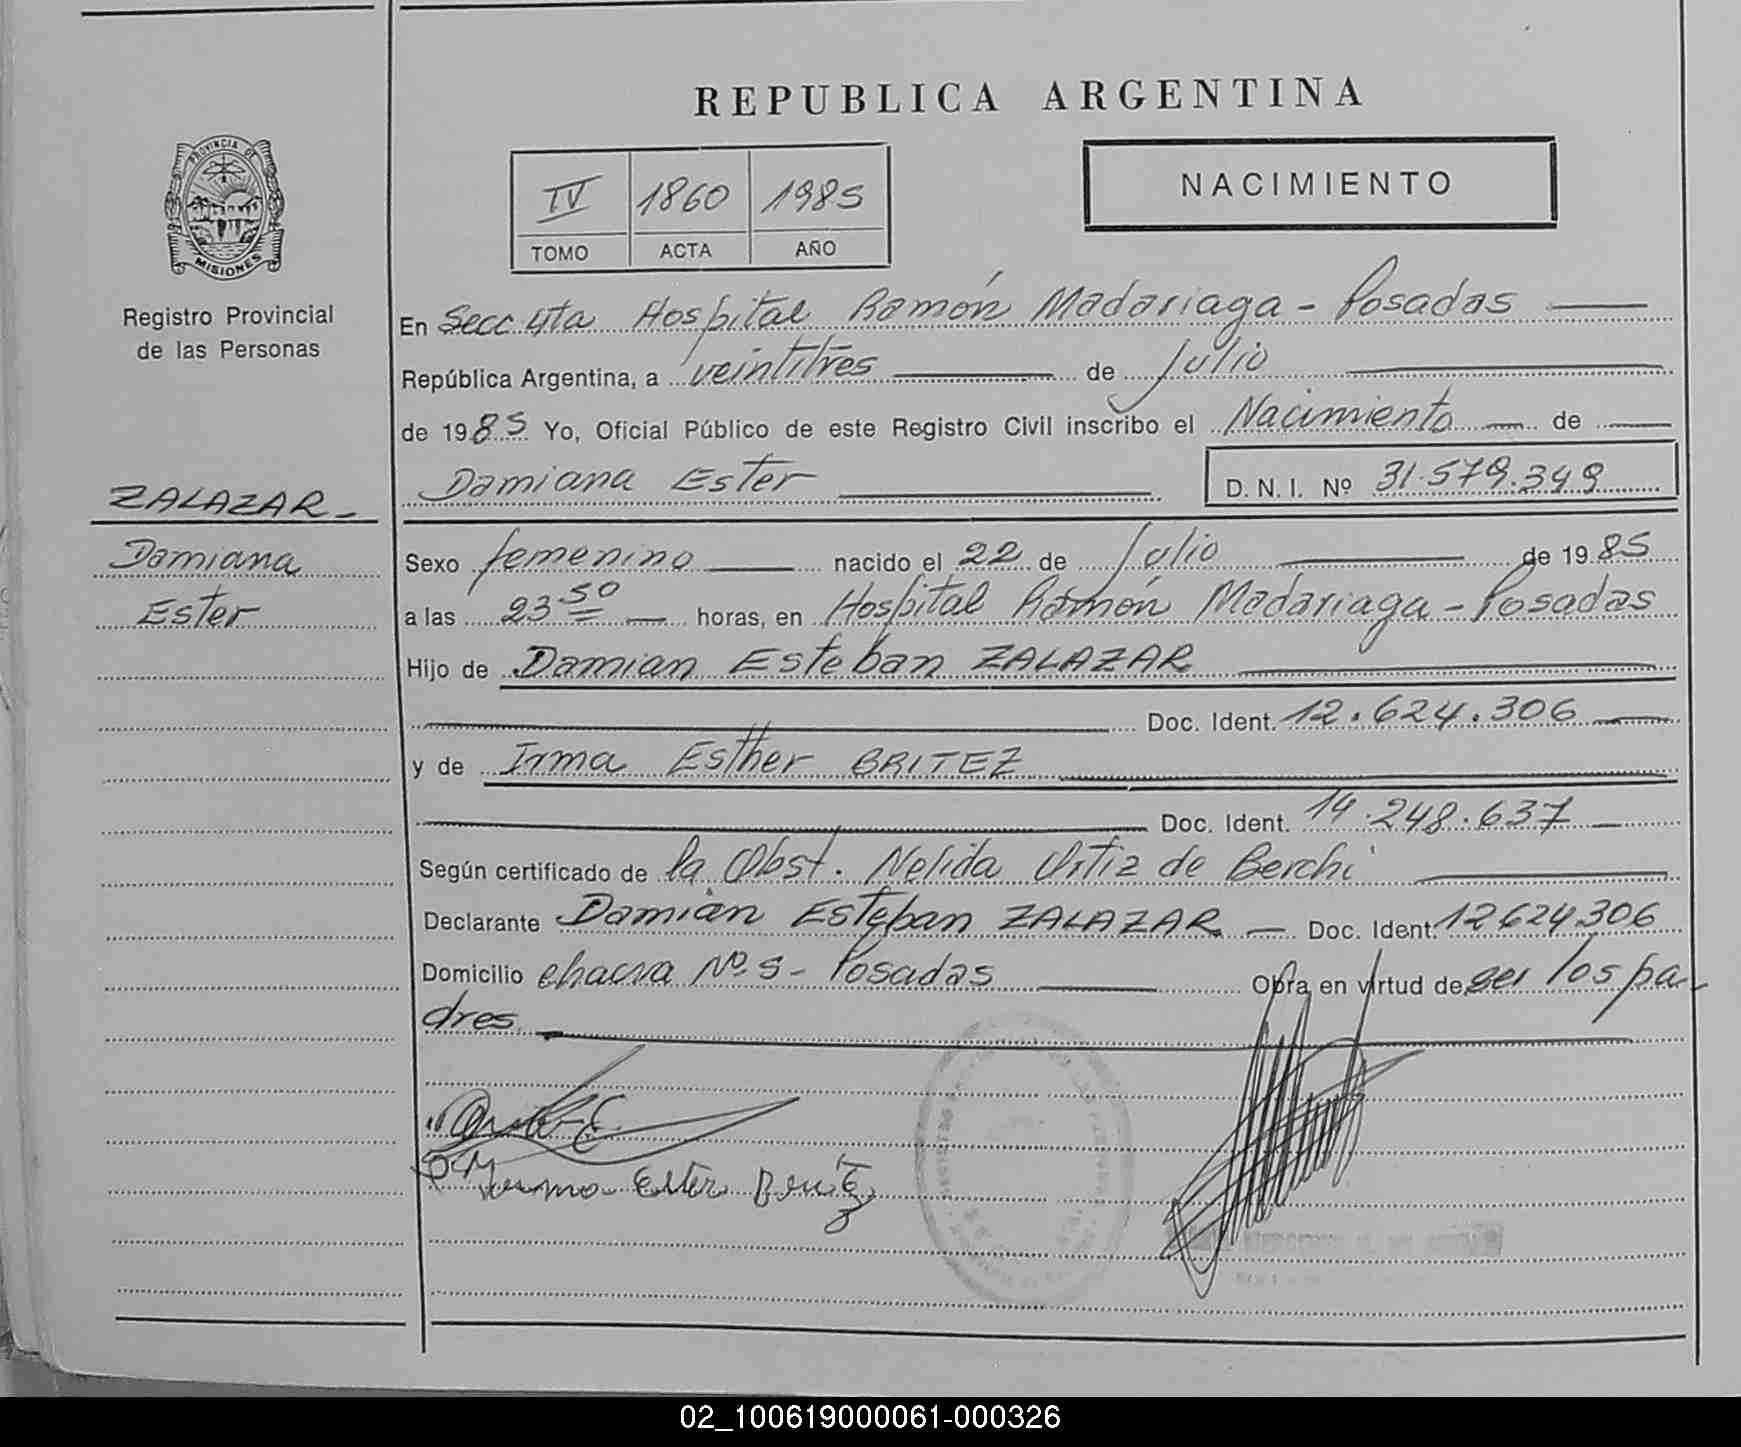 REPUBLICA ARGENTINA
PROVINCIA DE
MISIONES
Registro Provincial
de las Personas
IV 1860 1985
TOMO ACTA AÑO
NACIMIENTO
En Secc 4ta Hospital Ramón Madariaga - Posadas
República Argentina, a veintitres de Julio
de 1985 Yo, Oficial Público de este Registro Civil inscribo el Nacimiento de
Damiana Ester D. N. I. Nº 31.579.349
ZALAZAR
Damiana
Ester
Sexo femenino nacido el 22 de Julio de 1985
a las 23 50 horas, en Hospital Ramón Madariaga - Posadas
Hijo de Damian Esteban ZALAZAR
Doc. Ident. 12.624.306
y de Irma Esther BRITEZ
Doc. Ident. 14.248.637
Según certificado de la Obst. Nelida Ortiz de Berchi
Declarante Damián Esteban ZALAZAR Doc. Ident. 12624306
Domicilio chacra Nº 5 - Posadas Obra en virtud de ser los pa-
dres
Ester
02_100619000061-000326